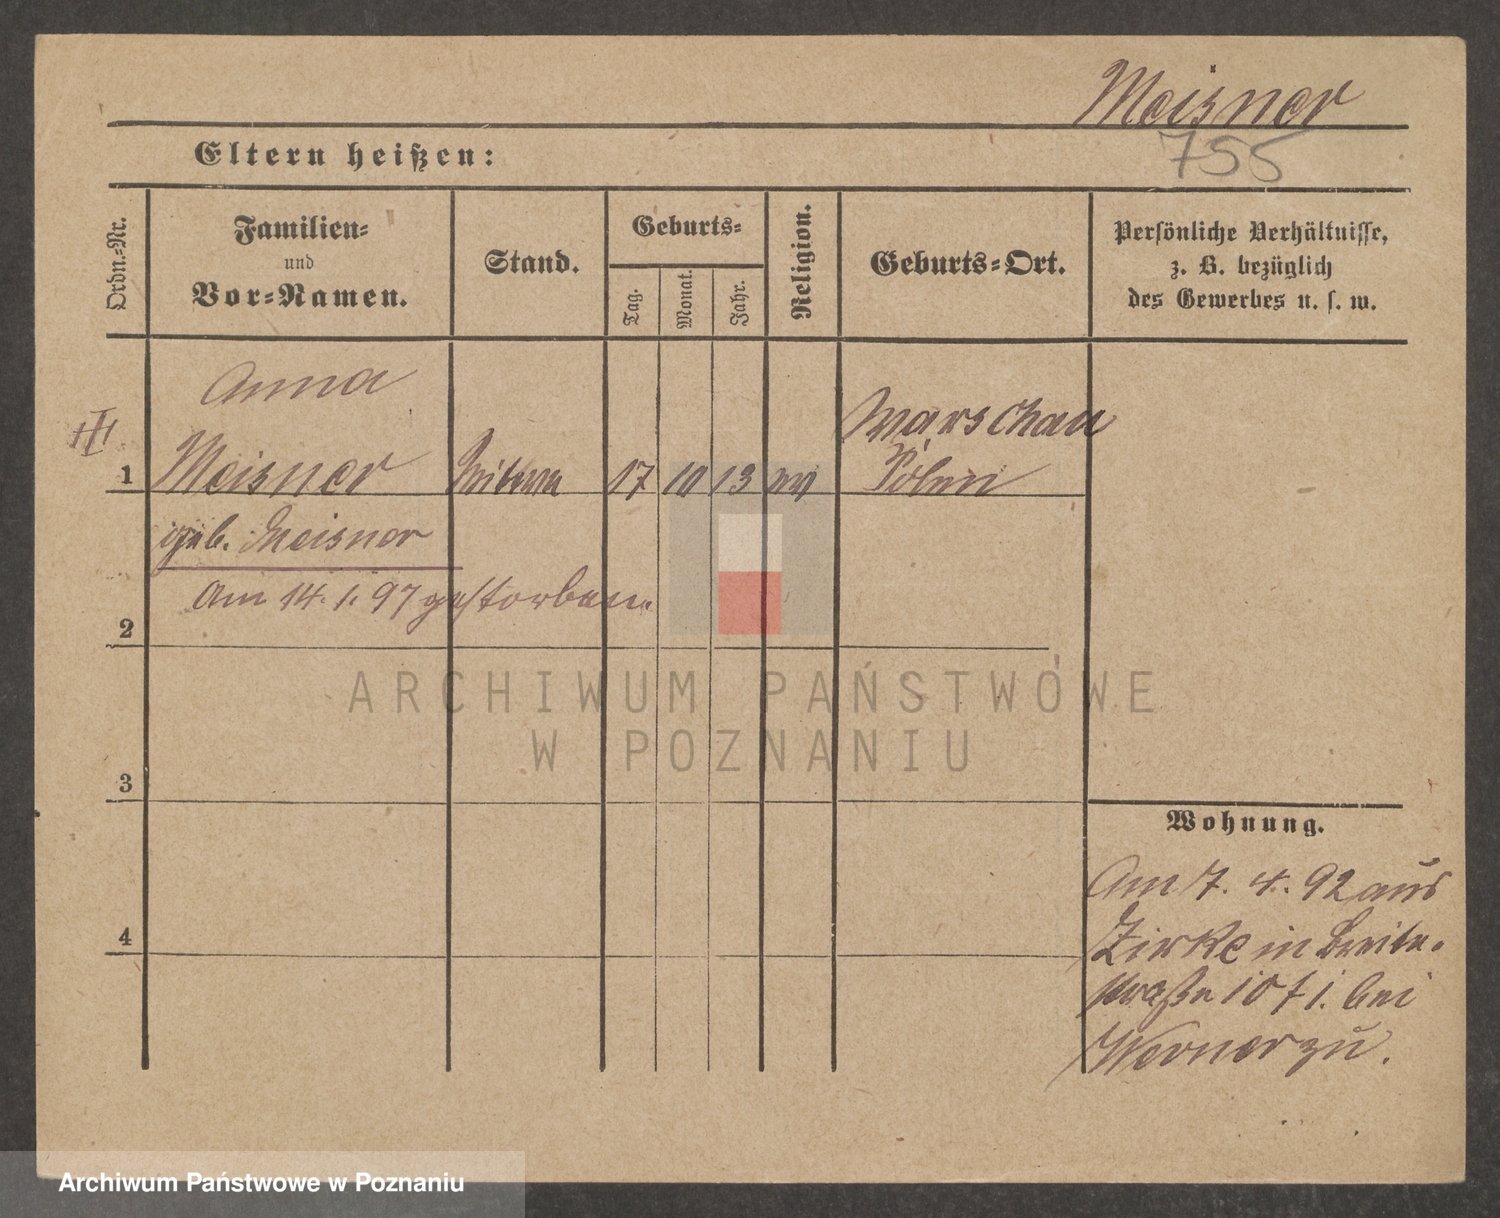 Meisner
755
Eltern heißen:
Ordn.-Nr.
Familien-
und
Vor-Namen.
Stand.
Geburts-
Tag.
Monat.
Jahr.
Religion.
Geburts-Ort.
Persönliche Verhältnisse,
z. B. bezüglich
des Gewerbes u. s. w.
Anna
1 Meisner Wittwe 17 10 13 ev
Warschau
Polen
geb. Meisner
am 14. 1. 97 gestorben.
2
3
4
Wohnung.
Am 7. 4. 92 aus
Zirke in Breite-
straße 10 f 1. bei
Werner zu.
ARCHIWUM PAŃSTWOWE
W POZNANIU
Archiwum Państwowe w Poznaniu